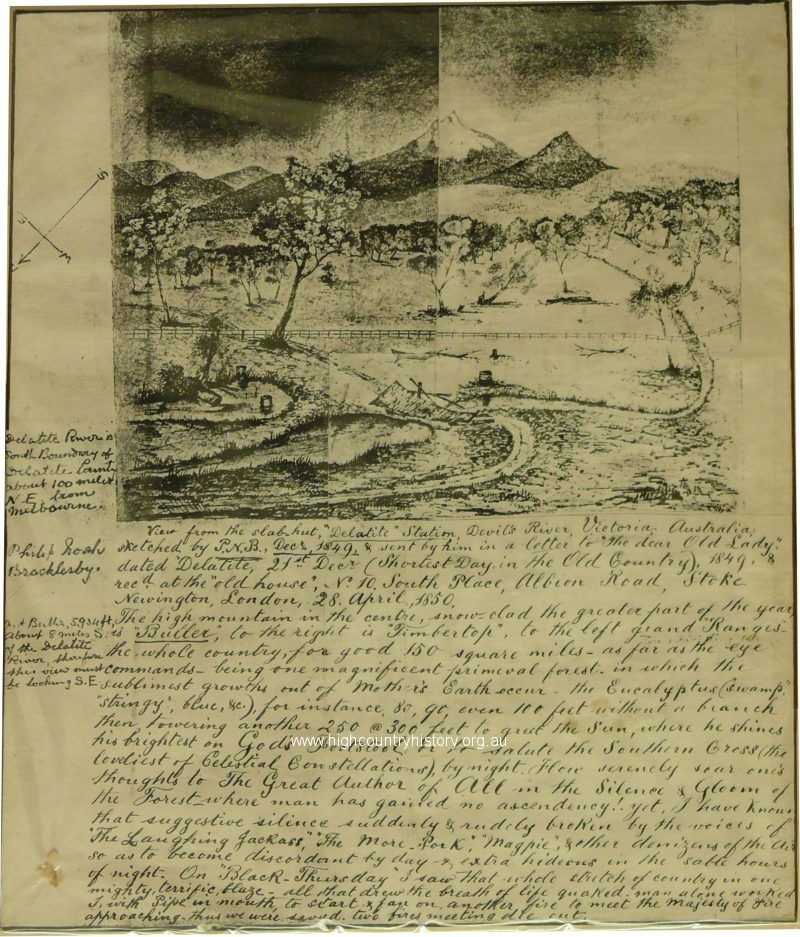 S
N
Delatite River is
South Boundary of
Delatite County
about 100 miles
N.E. from
Melbourne.
Philip Nosh
Brocklesby.
Mt Buller, 5,934 ft,
about 8 miles S.
of the Delatite
River, therefore
this view must
be looking S.E.
View from the slab-hut, "Delatite" Station, Devil's River, Victoria, Australia,
sketched by P.N.B., Decr, 1849, & sent by him in a letter to "the dear Old Lady",
dated Delatite, 21st Decr (Shortest Day, in the Old Country), 1849, &
recd at the "old house", No 10, South Place, Albion Road, Stoke
Newington, London, 28 April, 1850.
The high mountain in the centre, snow-clad the greater part of the year,
is "Buller", to the right is "Timbertop", to the left grand "Ranges"-
the whole country, for good 150 square miles - as far as the eye
commands - being one magnificent primeval forest - in which the
sublimest growths out of Mother's Earth occur - the Eucalyptus ("swamp",
"stringy", blue, &c.), for instance, 80, go, even 100 feet without a branch
then towering another 250 @ 300 feet to greet the Sun, where he shines
his brightest on God's
www.highcountryhistory.org.au
salute the Southern Cross (the
loveliest of Celestial Constellations), by night. How serenely soar one's
thoughts to The Great Author of All in the Silence & Gloom of
the Forest - where man has gained no ascendency! yet, I have known
that suggestive silence suddenly & rudely broken by the voices of
"The Laughing Jackass," "The More-Pork", "Magpie", & other denizens of the Air
so as to become discordant by day - & extra hideous in the sable hours
of night. On "Black-Thursday" I saw that whole stretch of country in one
mighty, terrific, blaze - all that drew the breath of life quaked - man alone worked
I, with Pipe in mouth, to start & fan on, another, fire to meet the Majesty of Fire
approaching - thus we were saved - two fires meeting die out.